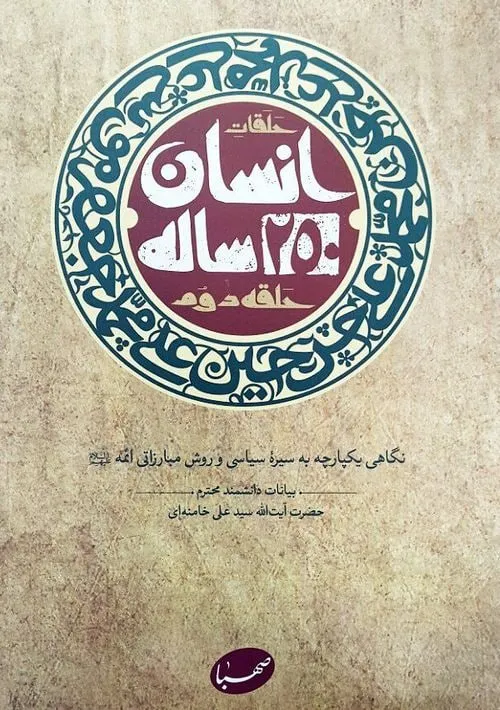 حلقاتِ
انسان
۲۵۰
ساله
حلقه دوم
محمد علی حسن حسین علی محمد جعفر موسی
نگاهی یکپارچه به سیرهٔ سیاسی و روش مبارزاتی ائمه علیهم‌السلام
بیانات دانشمند محترم
حضرت آیت‌الله سید علی خامنه‌ای
صهبا